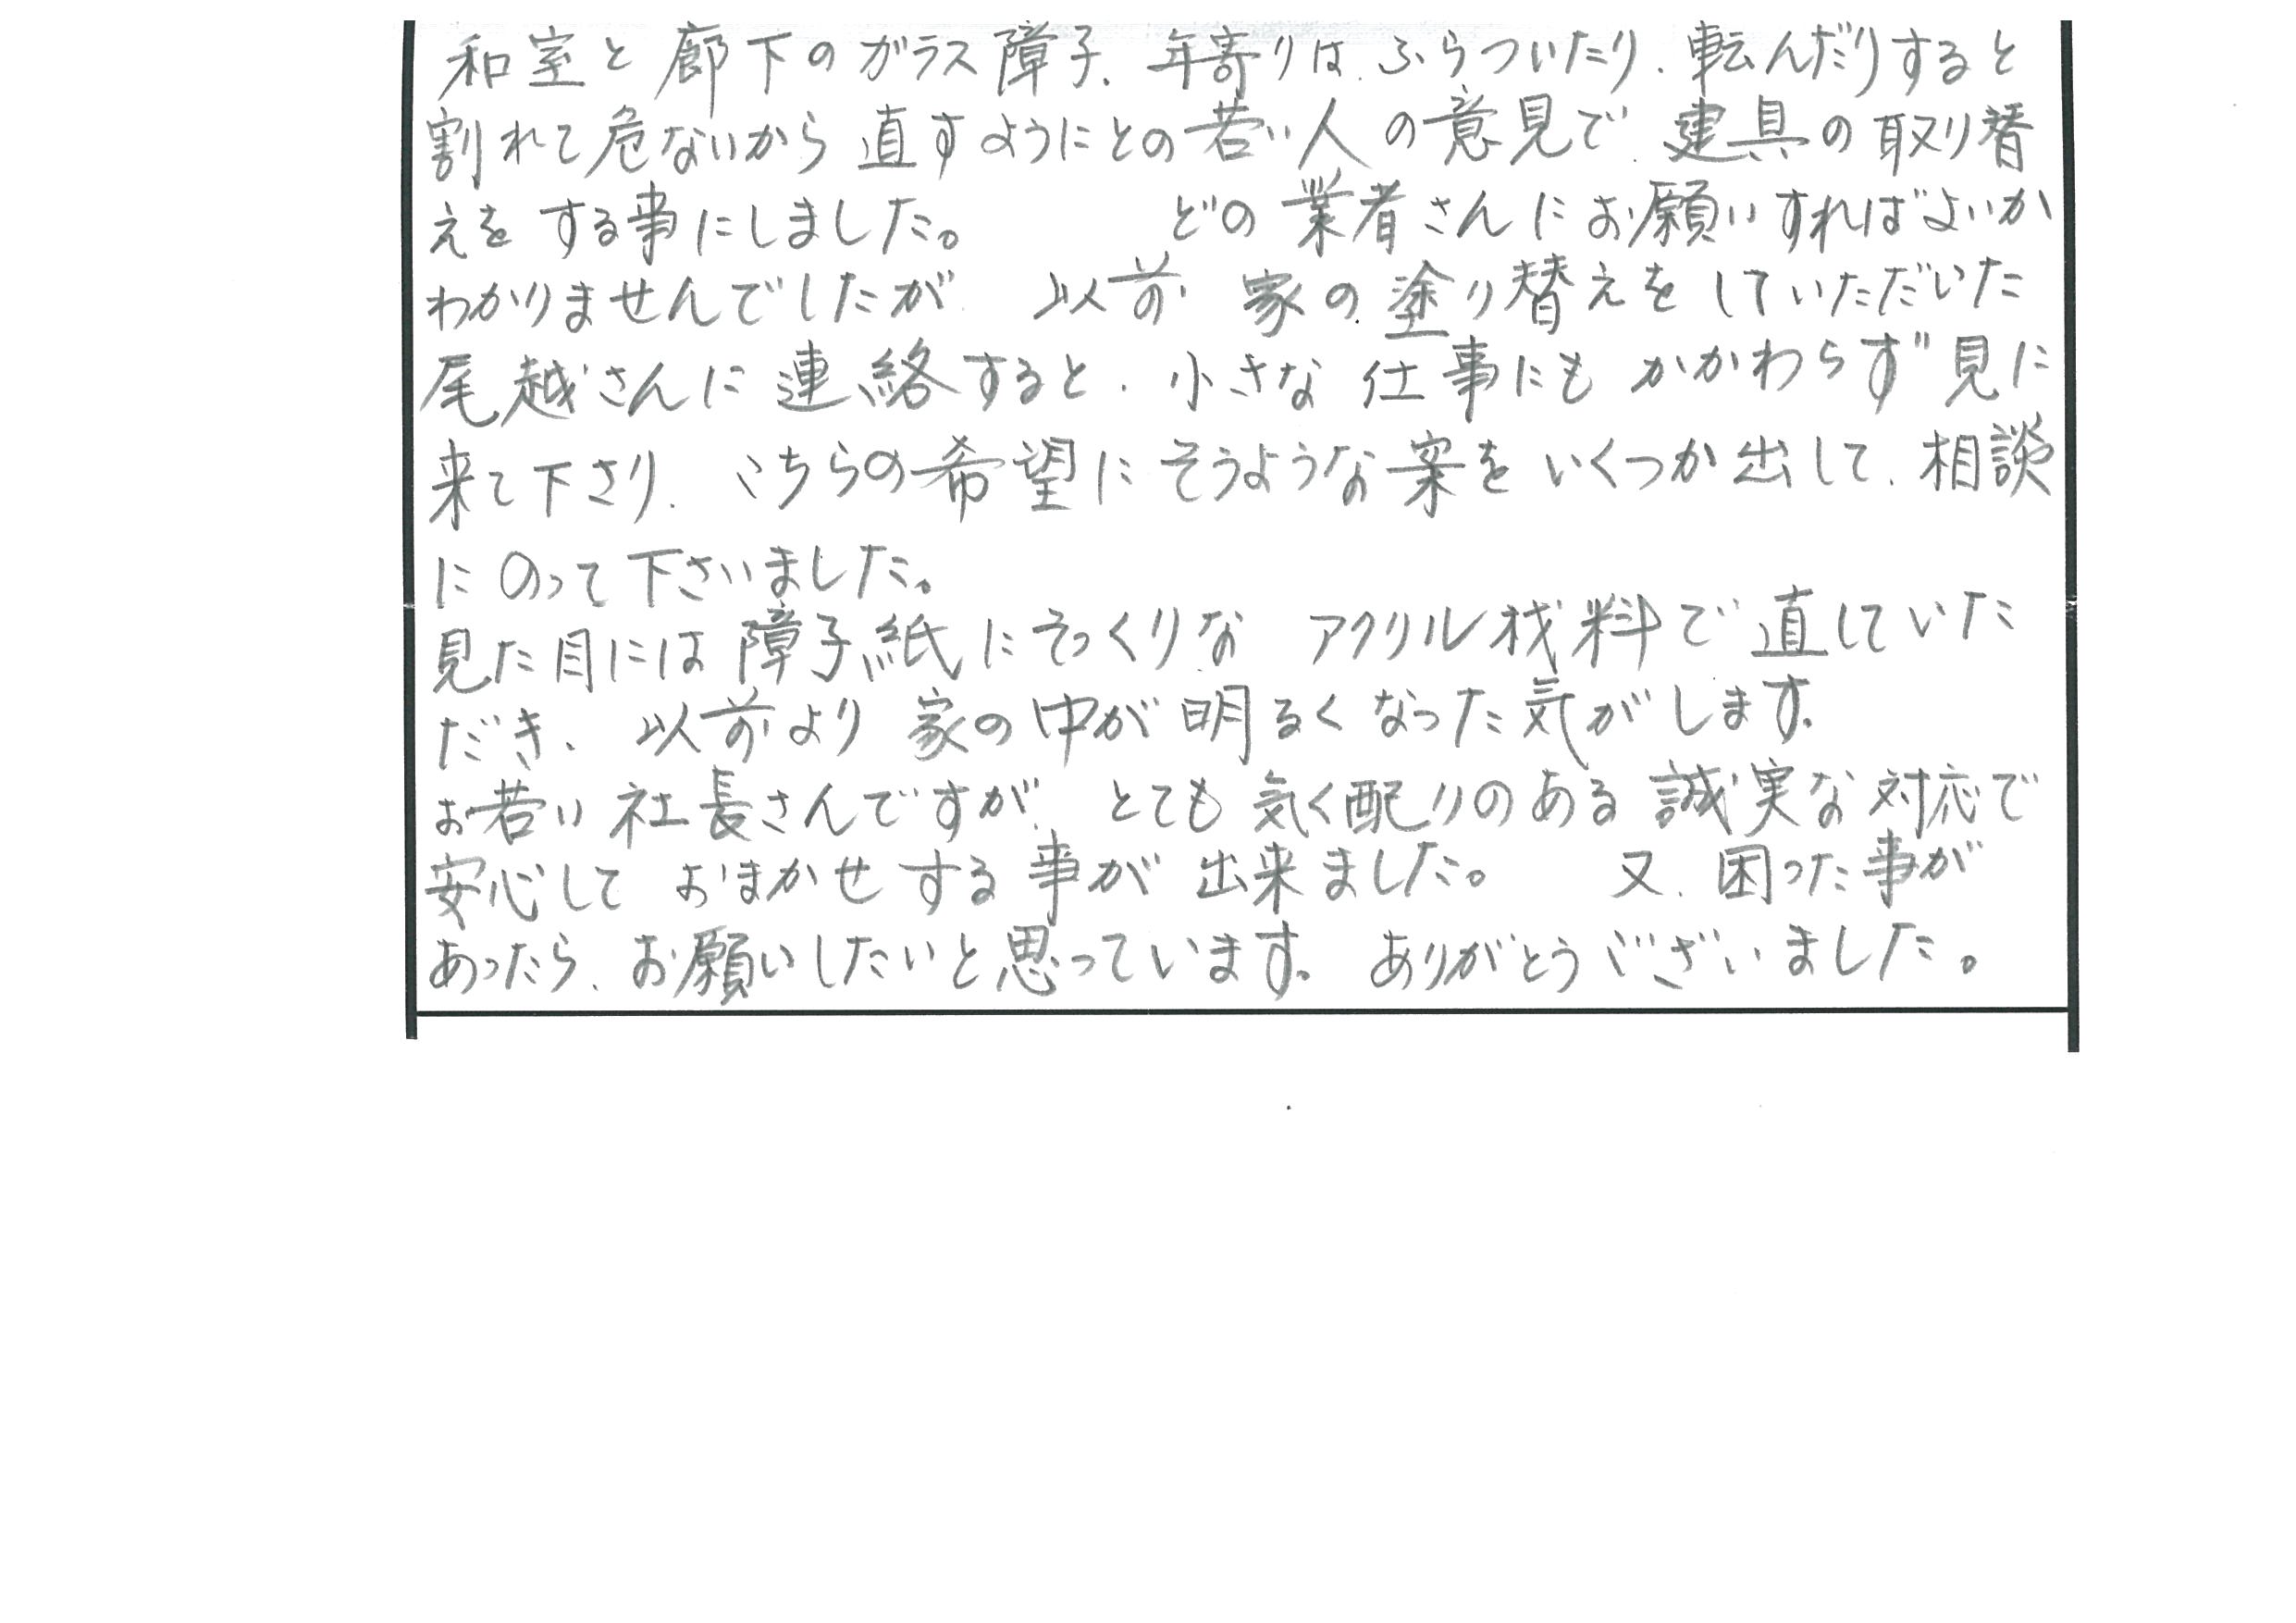 和室と廊下のガラス障子、年寄りは、ふらついたり、転んだりすると
割れて危ないから直すようにとの若い人の意見で、建具の取り替
えをする事にしました。　どの業者さんにお願いすればよいか
わかりませんでしたが、以前 家の塗り替えをしていただいた
尾越さんに連絡すると、小さな仕事にもかかわらず見に
来て下さり、こちらの希望にそうような案をいくつか出して、相談
にのって下さいました。
見た目には障子紙にそっくりな アクリル材料で直していた
だき、以前より家の中が明るくなった気がします。
お若い社長さんですが、とても気く配りのある誠実な対応で
安心して おまかせする事が出来ました。　又、困った事が
あったら、お願いしたいと思っています。ありがとうございました。